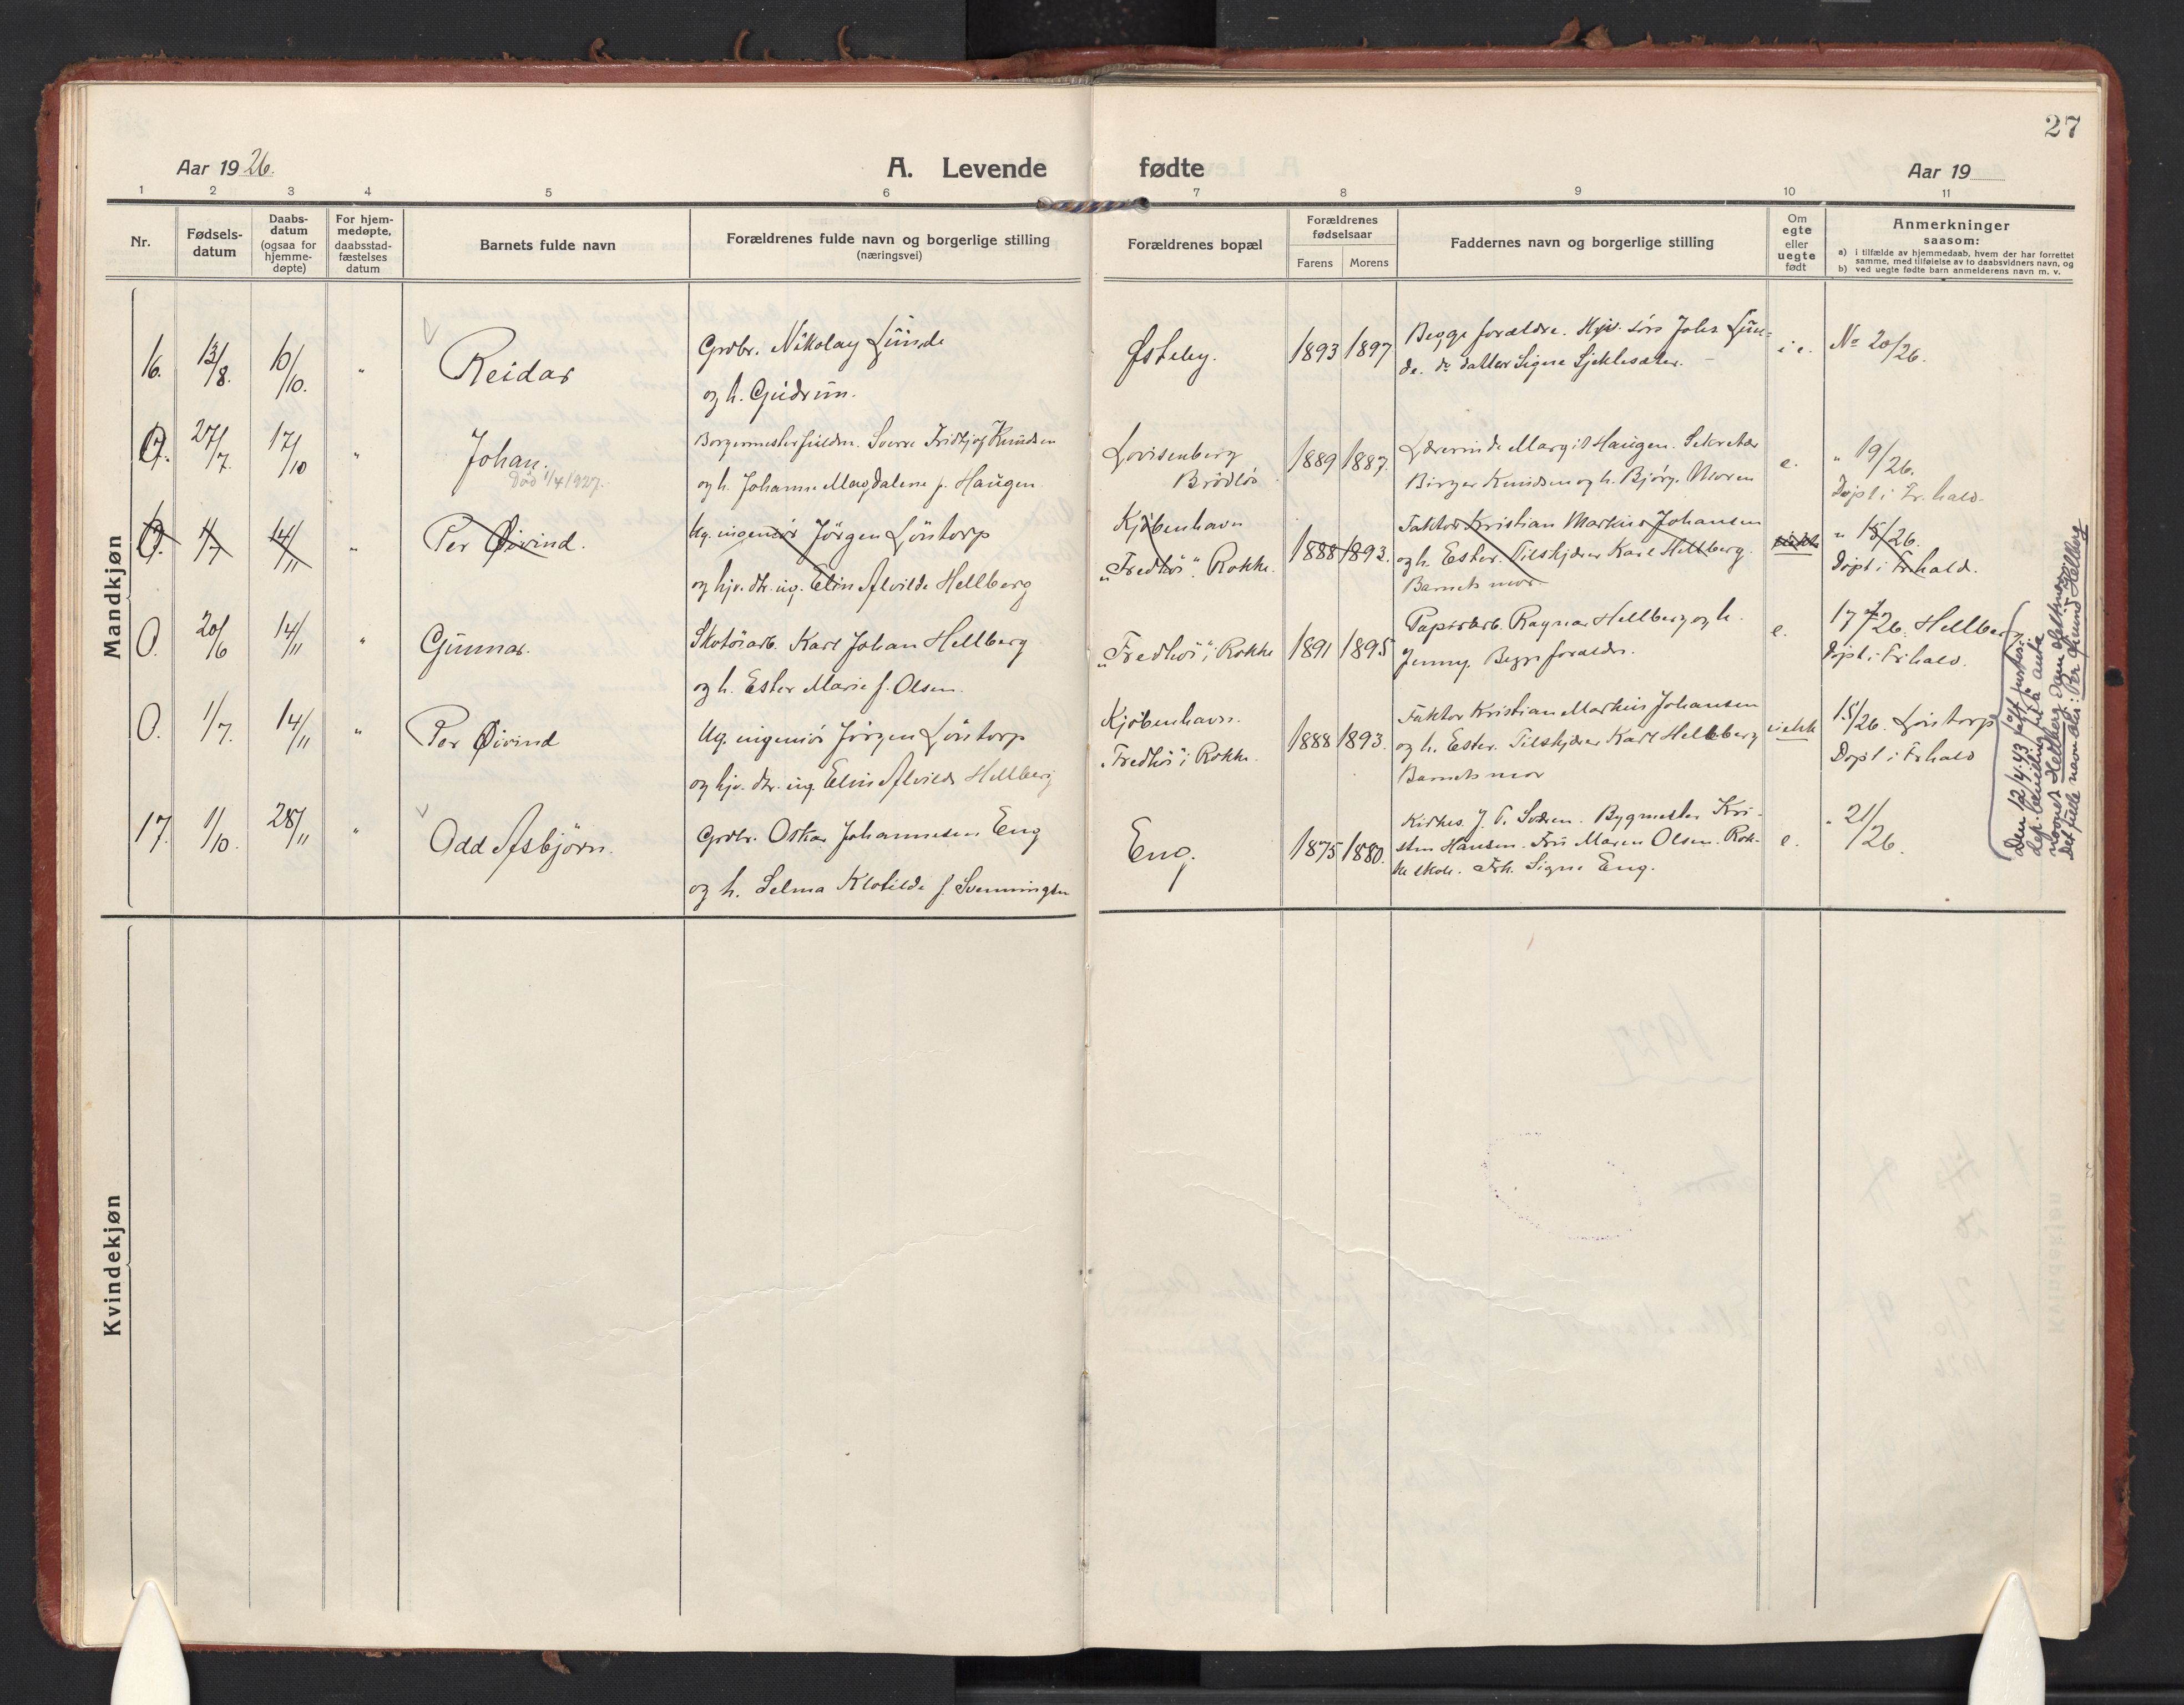 27
Aar 1926. A. Levende fødte Aar 19
1 2 3 4 5 6 7 8 9 10 11
Nr. Fødsels-datum Daabs-datum (ogsaa for hjemme-døpte) For hjem-medøpte, daabsstad-fæstelses datum Barnets fulde navn Forældrenes fulde navn og borgerlige stilling (næringsvei) Forældrenes bopæl Forældrenes fødselsaar Farens Morens Faddernes navn og borgerlige stilling Om egte eller uegte født Anmerkninger saasom:
a) i tilfælde av hjemmedaab, hvem der har forrettet samme, med tilføielse av to daabsvidners navn, og
b) ved uegte fødte barn anmelderens navn m. v.
Mandkjøn
16. 13/8. 10/10. " Reidar Grdbr. Nikolay Lunde Østeby. 1893 1897 Begge forældre. Hjv. søn Johs. Lun-
og h. Gudrun. de. do datter Signe i.e. No 20/26.
O. 27/7. 17/10 " Johan. Borgermesterfuldm. Sverre Fridtjof Knudsen Lovisenberg 1889 1887. Lærerinde Margit Haugen. Sekretær e. " 19/26.
Död 1/4 1927. og h. Johanne Magdalene f. Haugen. Brödlös Birger Knudsen og h. Bjørg. Moren Døpt i Fr.hald.
O. 1/7 14/11 " Per Øivind. Ug. ingeniör Jörgen Löntorp Kjöbenhavn 1888 1893. Faktor Kristian Markius Johansen " 15/26.
og hjv. dtr. ug. Elin Alvilde Hellberg "Fredhöi". Rokke. og h. Ester. Tilskjærer Karl Hellberg. Døpt i Frhald.
Barnets mor.
O. 20/6 14/11 " Gunnar. Skotöiarb. Karl Johan Hellberg "Fredhöi" i Rokke 1891 1895 Papirarb. Ragnar Hellberg og h. e. 17/26. Hellberg
og h. Ester Marie f. Olsen. Jenny. Begge forældre. Döpt i Frhald.
O. 1/7. 14/11 " Per Øivind Ug. ingeniör Jörgen Löntorp Kjöbenhavn. 1888 1893. Faktor Kristian Markius Johansen uekte 15/26. Löntorp
og hjv. dtr. ug. Elin Alvilde Hellberg "Fredhöi" i Rokke. og h. Ester. Tilskjærer Karl Hellberg Döpt i Frhald
Barnets mor
17. 1/10. 28/11 " Odd Asbjørn. Grdbr. Oskar Johannesen Eng Eng. 1875 1880. Kirkes. J. O. Bygmester Kri-
og h. Selma Klotilde f. Svenningsen sten Hansen. Fru Maren Olsen. Rok- e. " 21/26.
ke skole. Frk. Signe Eng.
Den 12/4.43 fått justis:
dep. bevilling til å anta
navnet Hellberg som slektsnavn.
Det fulle navn er: Per Øivind Hellberg
Kvindekjøn